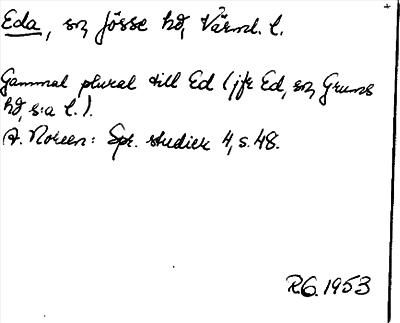 Eda, sn, Jösse hd, Värml. l.
Gammal plural till Ed (jfr Ed, sn, Grums
hd, s:a l.).
A. Noreen: Spr. studier 4, s. 48.
R.G. 1953